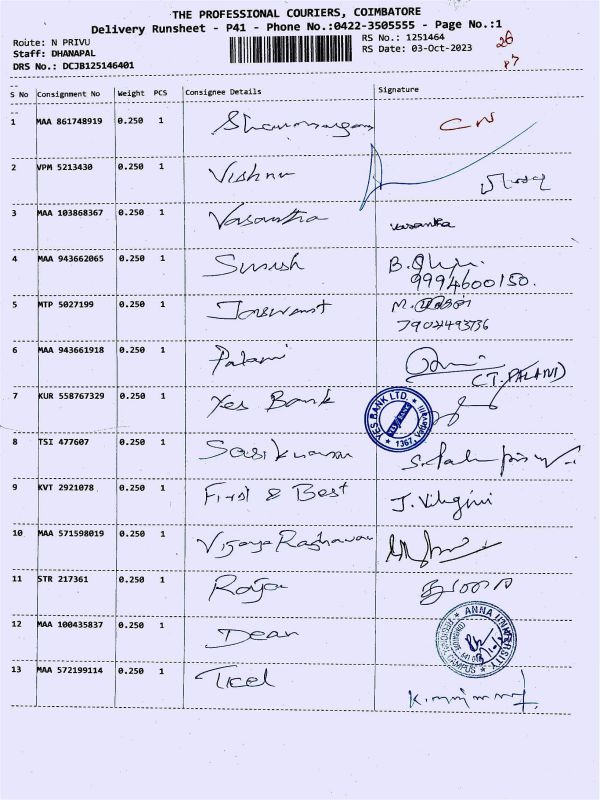 THE PROFESSIONAL COURIERS, COIMBATORE
Delivery Runsheet - P41 - Phone No.:0422-3505555 - Page No.:1
Route: N PRIVU
Staff: DHANAPAL
DRS No.: DCJB125146401
RS No.: 1251464
RS Date: 03-Oct-2023
26
P7
S No Consignment No Weight PCS Consignee Details Signature
1 MAA 861748919 0.250 1
2 VPM 5213430 0.250 1 Vishnu
3 MAA 103868367 0.250 1 Vasantha vasantha
4 MAA 943662065 0.250 1 Suresh
9994600150.
5 MTP 5027199 0.250 1 Jaswant M.
6 MAA 943661918 0.250 1 Palani
(T. PALANI)
7 KUR 558767329 0.250 1 Yes Bank YES BANK LTD.
8 TSI 477607 0.250 1 Sasikumar
9 KVT 2921078 0.250 1 First & Best
10 MAA 571598019 0.250 1 Vijaya Raghavan
11 STR 217361 0.250 1 Raja
12 MAA 100435837 0.250 1 Dean ANNA UNIVERSITY REGIONAL CAMPUS
13 MAA 572199114 0.250 1 Ticel